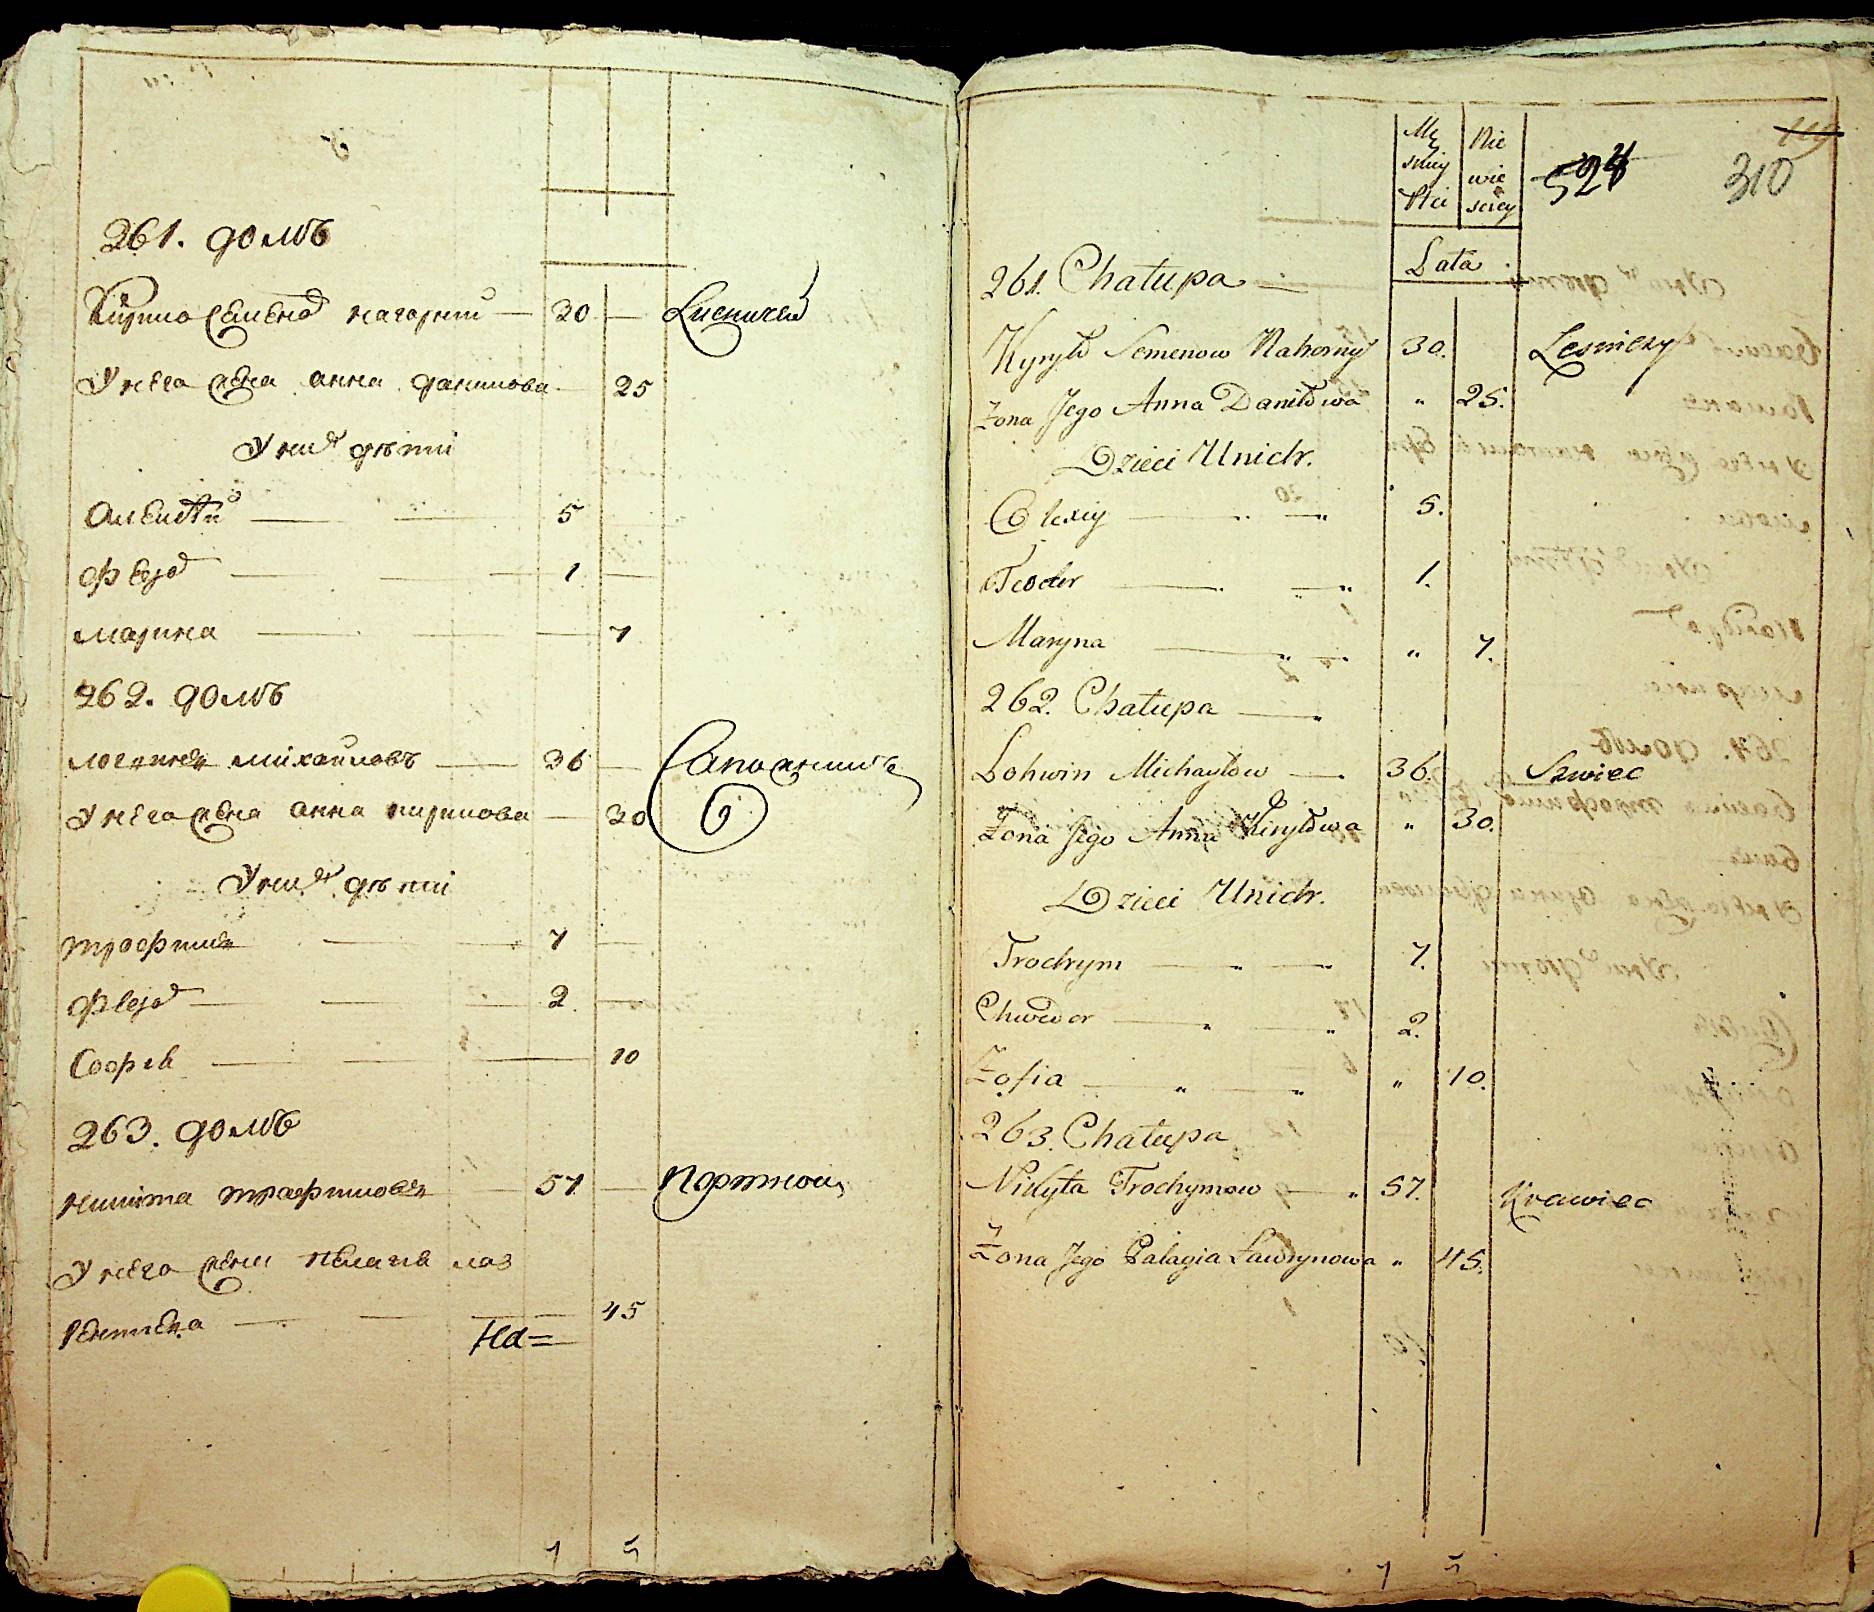 261. домъ
Кирило Семенов нагорни 30 Лисничей
У него жена анна данилова 25
У них дѣти
Алексѣй 5
Федор 1
марина 7
262. домъ
логвинъ михайловъ 36 Сапожникъ
У него жена анна кирилова 30
У них дѣти
трофимъ 7
Федор 2
София 10
263. домъ
никита трофимовъ 57 Портной
У него жена пелагия лав
рентиева 45
На=
7 5
Mę
skiey
Płci
Nie
wie
sciey
524
119
310
Lata
261. Chałupa
Kyryło Semenow Nahorny 30. Lesniczy
Zona Jego Anna Daniłowa " 25.
Dzieci Unich.
Olexiy 5.
Teodor 1.
Maryna " 7.
262. Chałupa
Lohwin Michayłow 36. Szwiec
Zona Jego Anna Kiryłowa " 30.
Dzieci Unich.
Trochym 7.
Chwedor 2.
Zofia " 10.
263. Chałupa
Nikyta Trochymow " 57. Krawiec
Zona Jego Palagia Ławrynowa " 45.
7 5